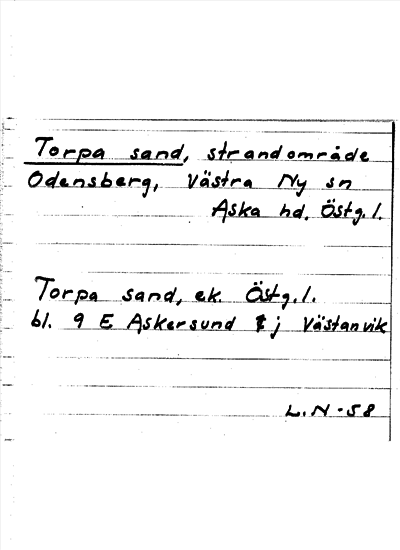 Torpa sand, strandområde
Odensberg, Västra Ny sn
Aska hd. Östg.l.
Torpa sand, ek. Östg.l.
bl. 9 E Askersund j Västanvik
L.N-58